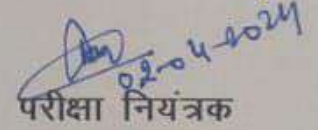 02-04-2024
परीक्षा नियंत्रक